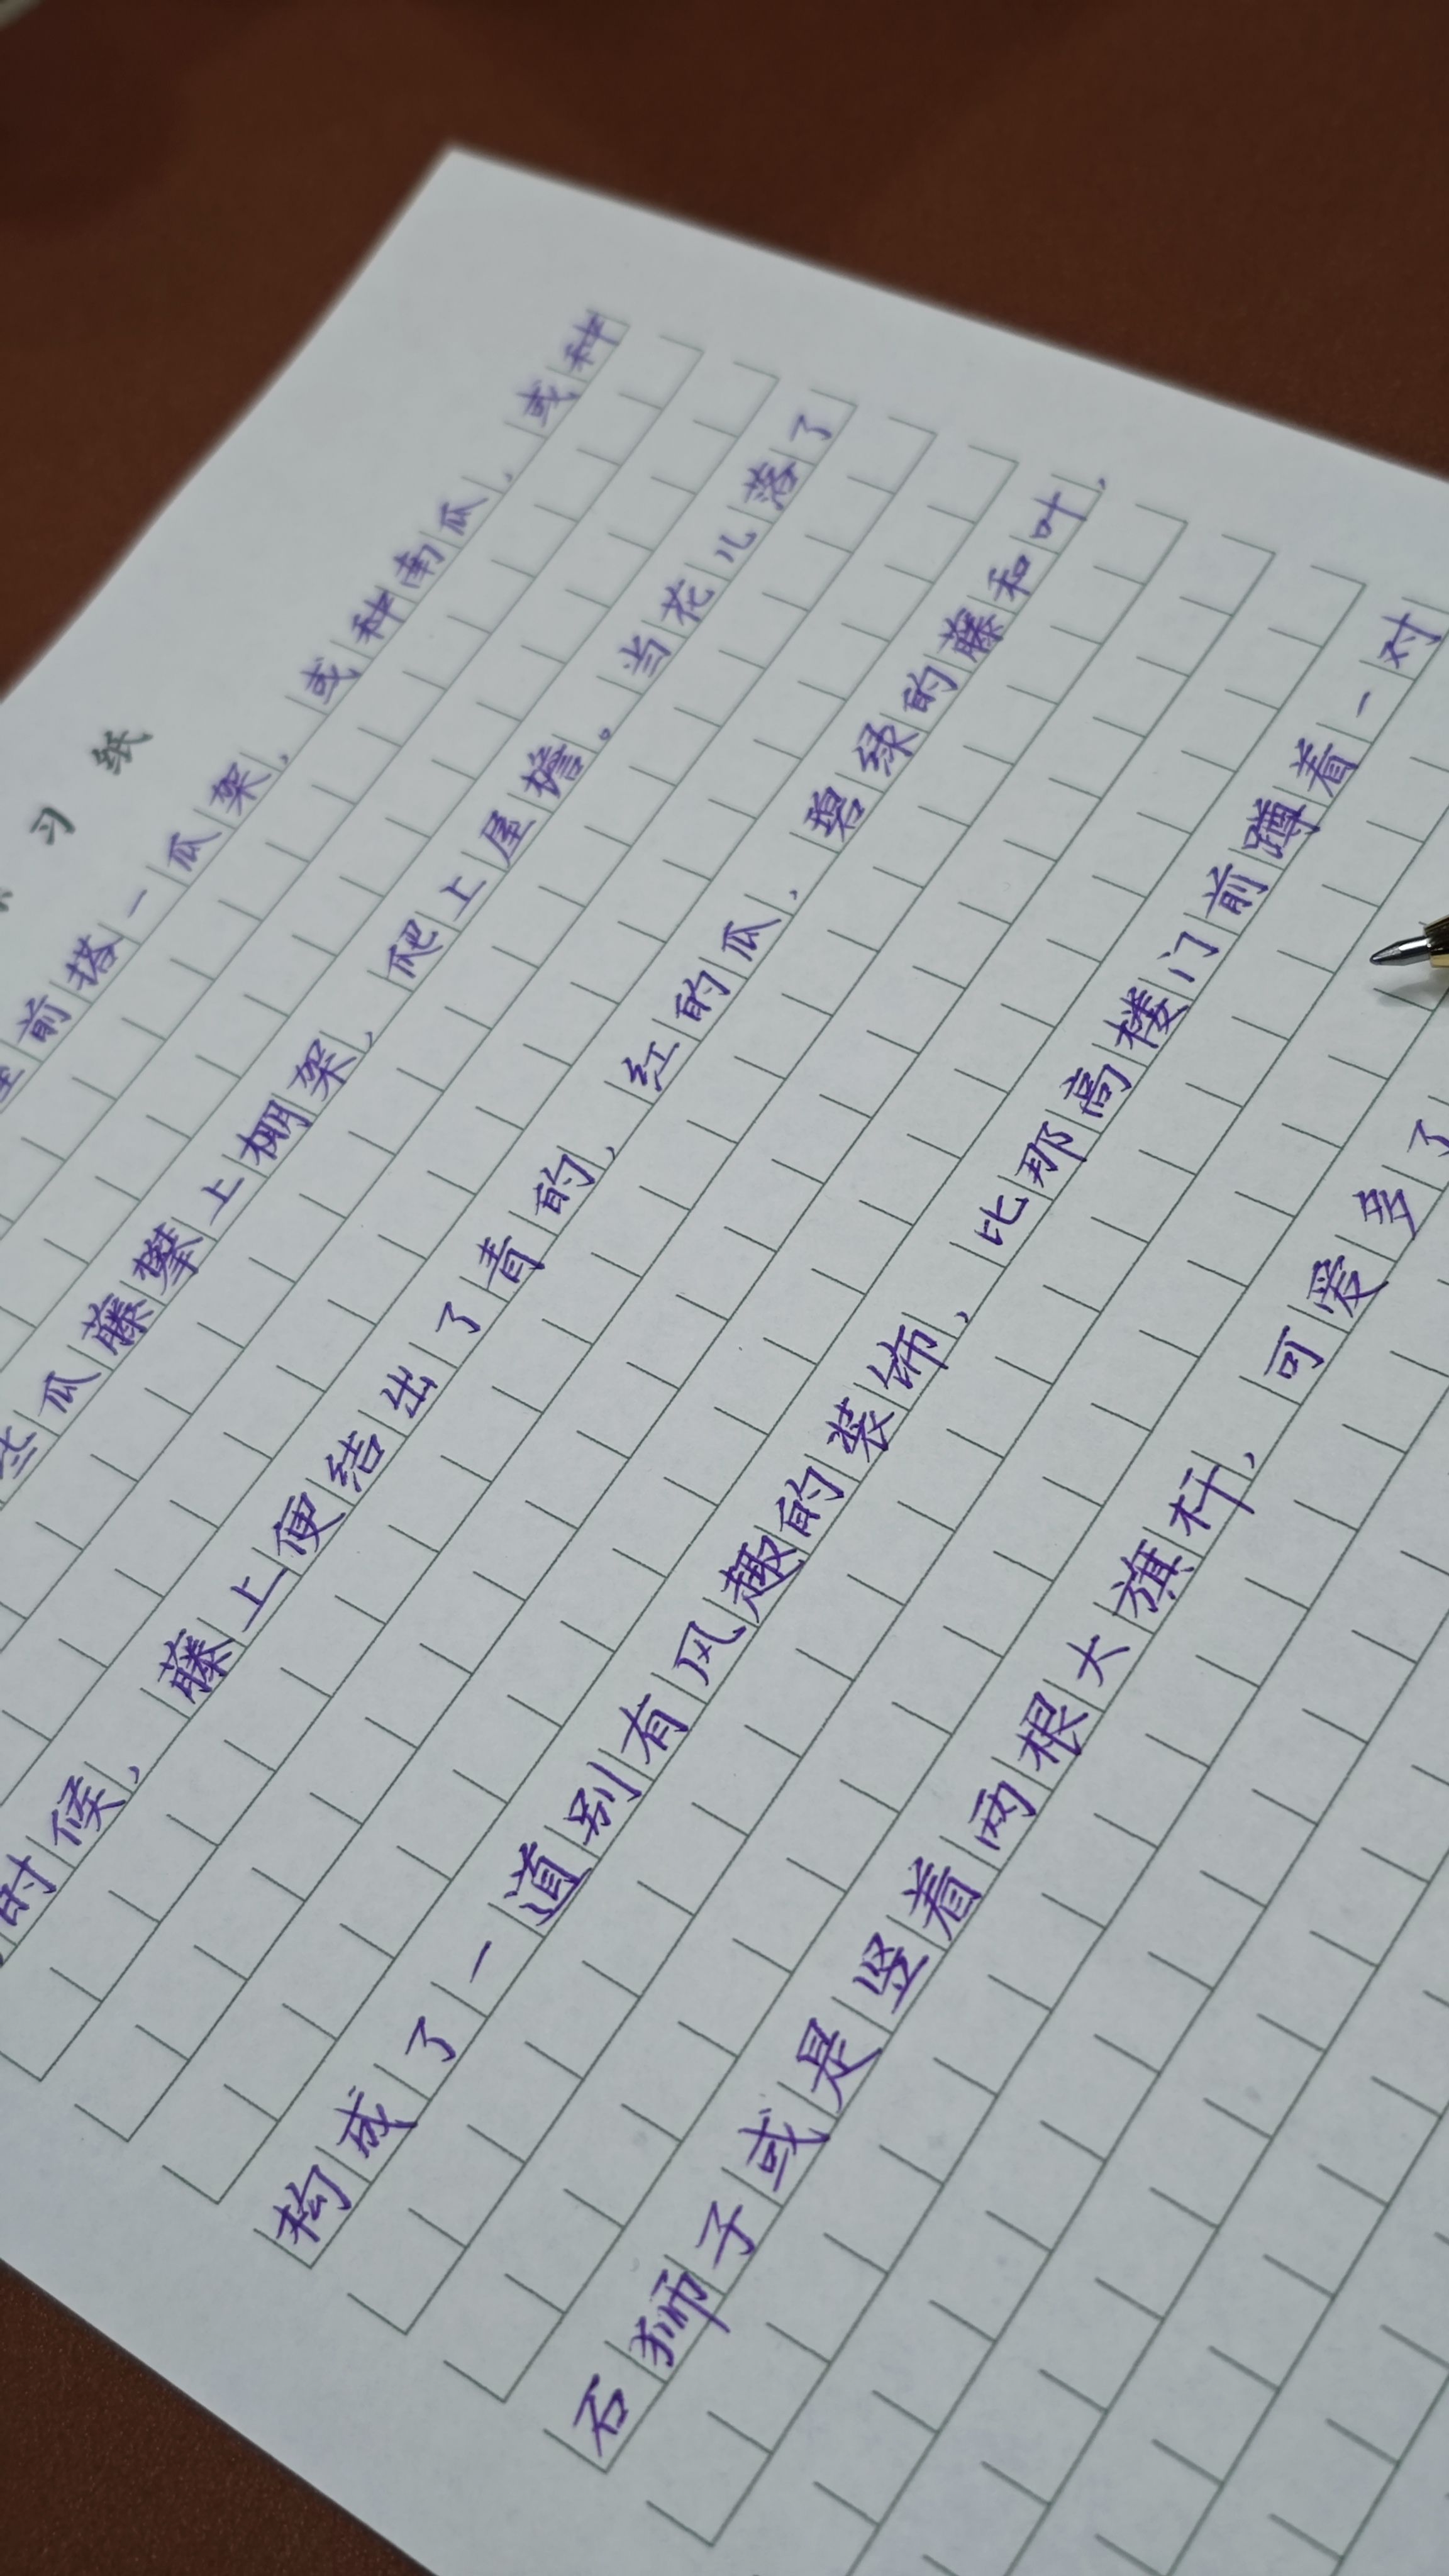 习纸
前搭一瓜架，或种南瓜，或种
些瓜藤攀上棚架，爬上屋檐。当花儿落了
时候，藤上便结出了青的、红的瓜，碧绿的藤和叶，
构成了一道别有风趣的装饰，比那高楼门前蹲着一对
石狮子或是竖着两根大旗杆，可爱多了